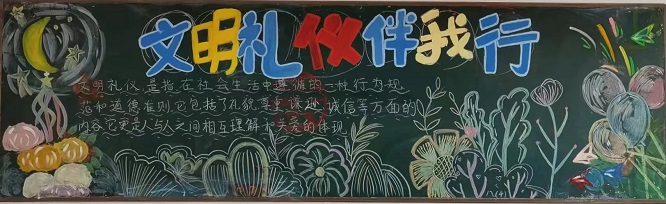 文明礼仪伴我行
文明礼仪是指在社会生活中遵循的一种行为规
范和道德准则,它包括了礼貌尊重谦逊,诚信等方面的
内容,它更是人与人之间相互理解和关爱的体现